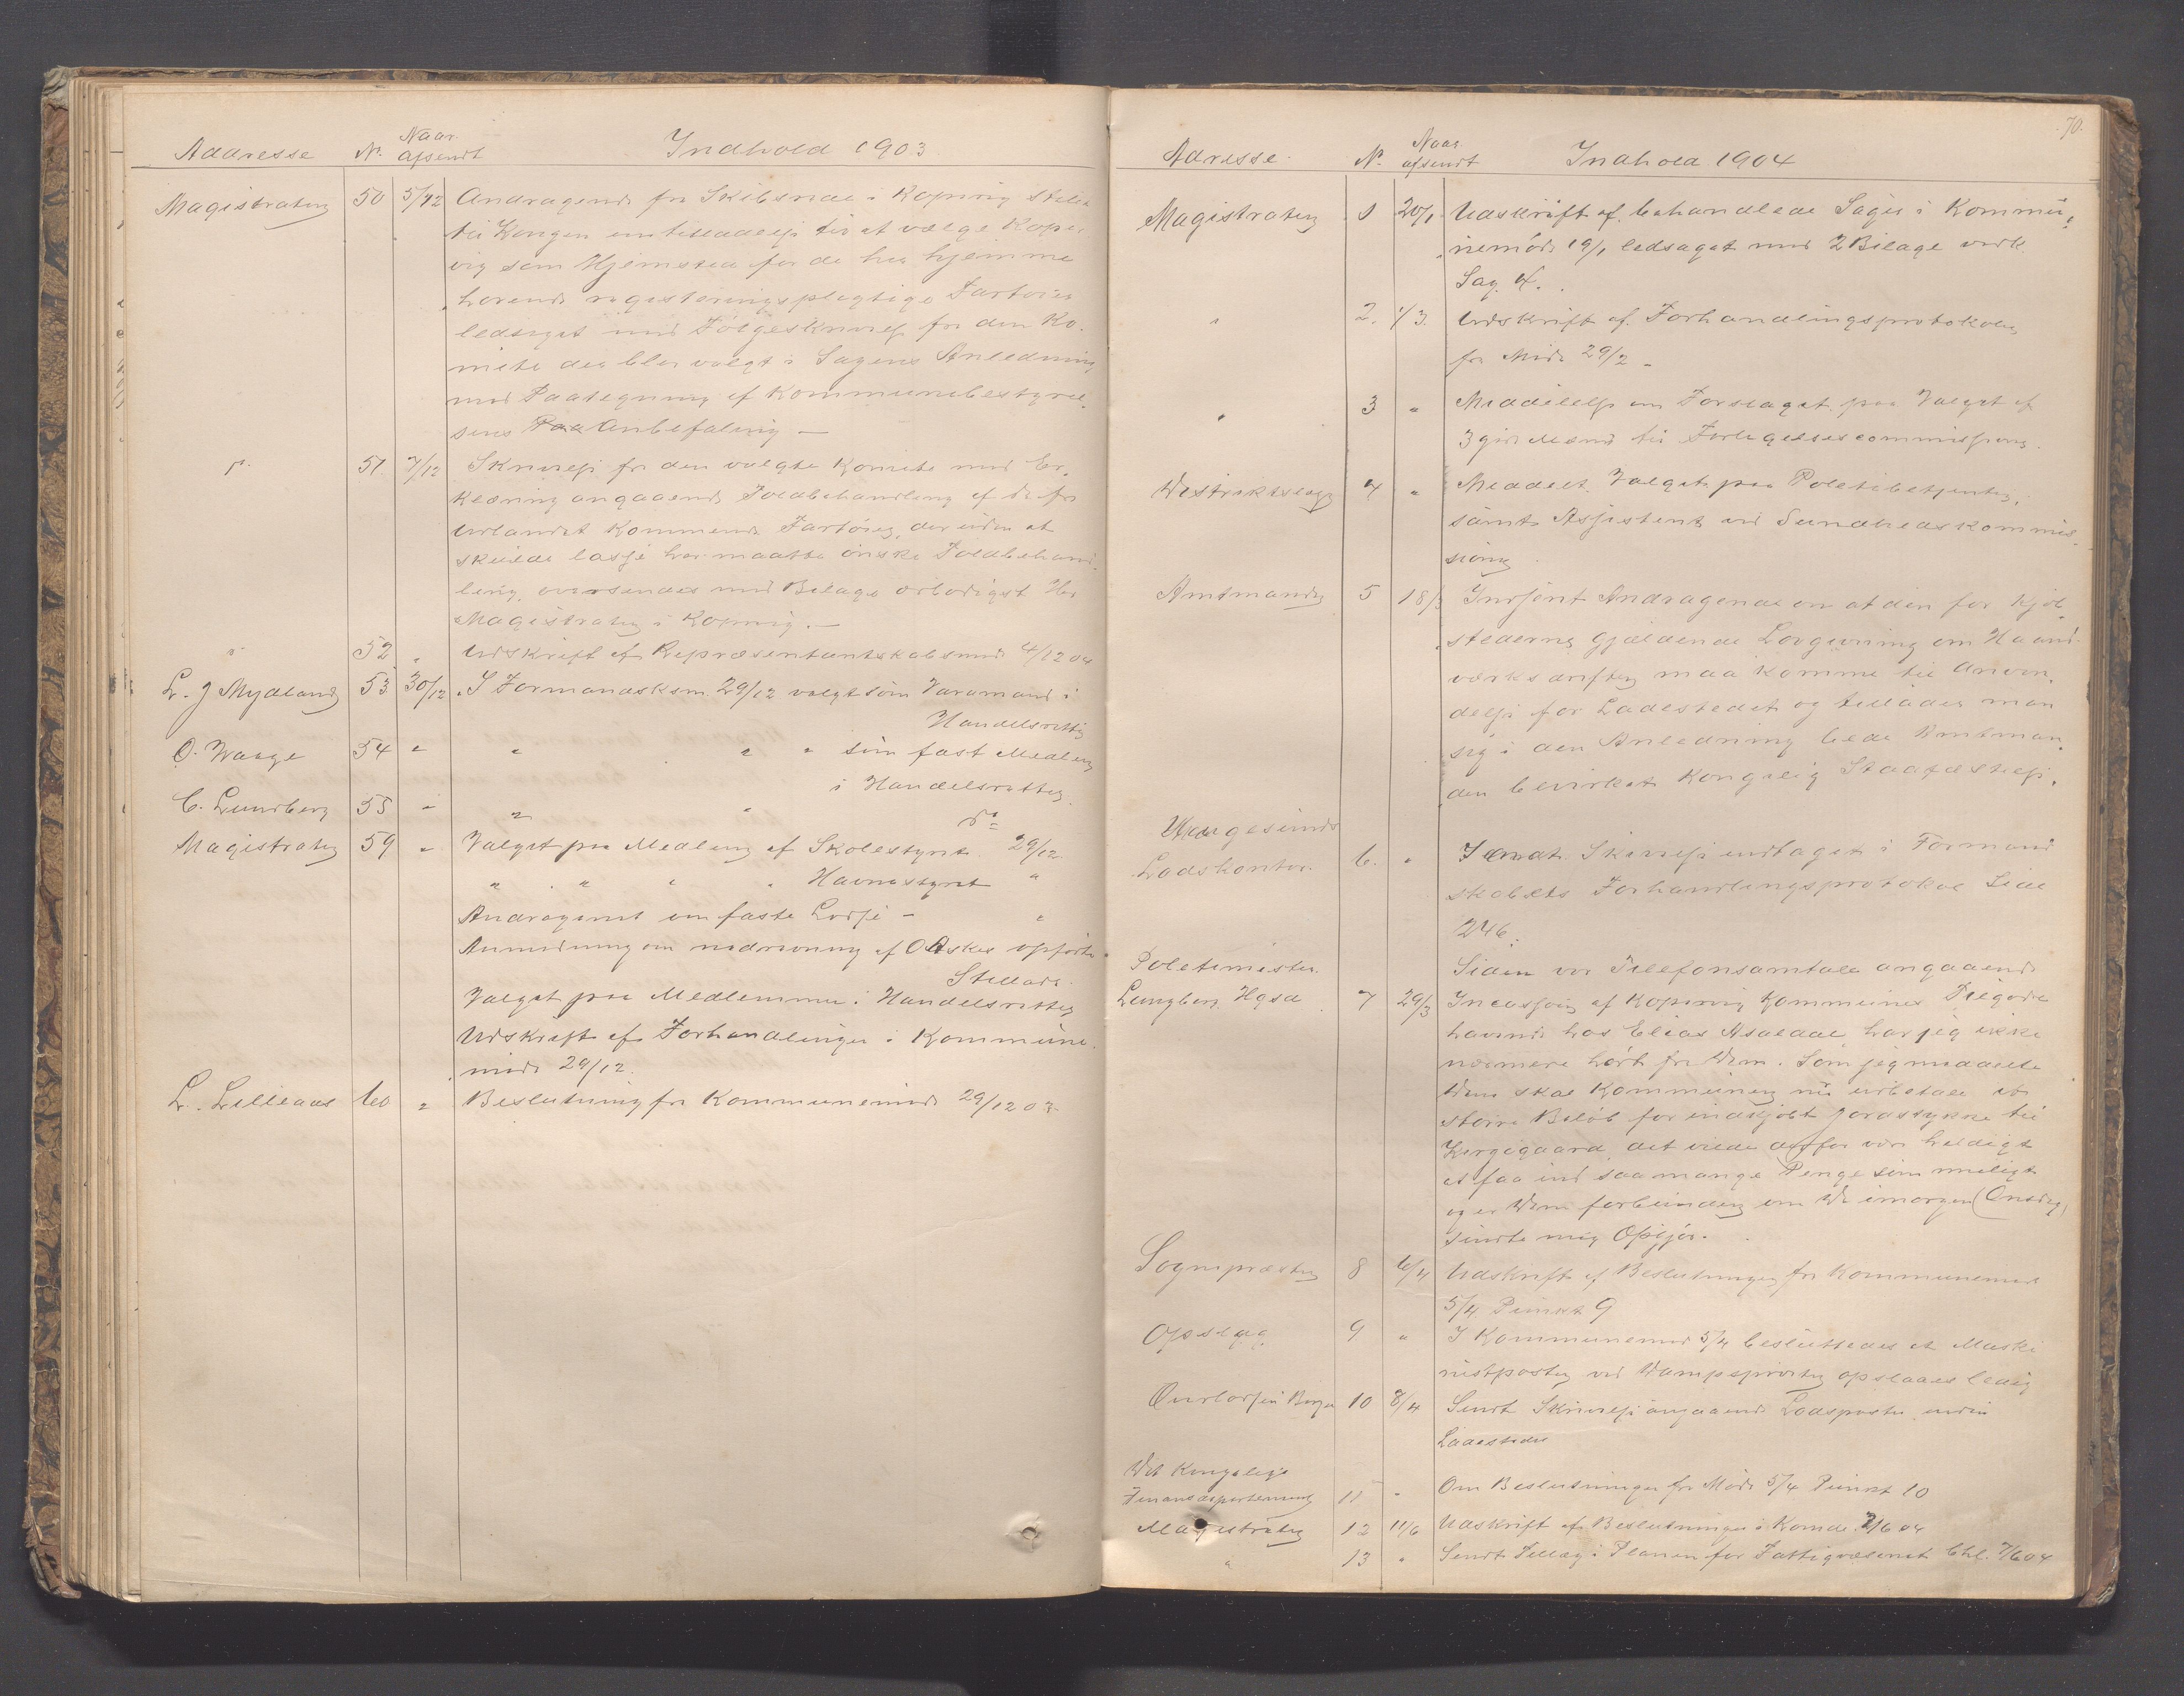 Addresse No. Naar afsendt Indhold 1903
Magistraten 50 5/12 Andragende fra Skibsrede i Kopervig stilet
til Kongen om tilladelse til at vælge Koper
vig som Hjemsted for de her hjemme
hørende registeringsplegtige Fartøier
ledsaget med Følgeskrivelse fra den Ko-
mite der blev valgt i Sagens Anledning
med Paategning af Kommunebestyrel-
sens Anbefaling —
51. 7/12 Skrivelse fra den valgte Komite med Er-
klæring angaaende Toldbehandling af de fra
Udlandet kommende Fartøier, der uden at
skulde losse her maatte ønske Toldbehand-
ling, oversendes med Bilage ærbødigst Hr
Magistraten i Kopervig. —
" 52 " Udskrift af Repræsentantskabsmøde 4/12 04
L. J Mydland 53 30/12 I Formandsksm. 29/12 valgt som Varamand i
Handelsretten
O. Waage 54 " " " " som fast Medlem
i Handelsretten
C. Lundberg 55 " " " do
Magistraten 59 " Valget paa Medlem af Skolestyret 29/12
" " " " Havnestyret "
Andragende om faste Lodse — "
Anmodning om nedrivning af O Askes opførte
Stillads.
Valget paa Medlemmer i Handelsretten
Udskrift af Forhandlinger i Kommune-
møde 29/12.
L. Lilleaas 60 " Beslutning fra Kommunemøde 29/12 03.
70.
Adresse No. Naar afsendt Indhold 1904
Magistraten 1 20/1 Udskrift af behandlede Sager i Kommu-
nemøde 19/1 ledsaget med 2 Bilage vedk.
Sag 4.
" 2. 1/3. Udskrift af Forhandlingsprotokolen
fra Møde 29/2 —
" 3 " Meddelelse om Forslaget paa Valget af
3 gode Mænd til Forligelsescommissionen.
Distriktslægen 4 " Meddelt Valget paa Politibetjenten,
samt Assistent ved Sundhedskommis-
sionen
Amtmanden 5 18/3 Indsendt Andragende om at den for Kjøb-
stederne gjældende Lovgivning om Haand-
værksdriften maa komme til Anven-
delse for Ladestedet og tillader man
sig i den Anledning bede Amtman-
den bevirket Kongelig Stadfæstelse.
Haugesunds
Lodskontor. 6. " Sendt Skrivelse indtaget i Formand
skabets Forhandlingsprotokol Side
246.
Politimester Siden vor Telefonsamtale angaaende
Lungberg. Hgsd 7 29/3 Incassoen af Kopervig Kommunes Tilgode
havende hos Elias Asaldal har jeg ikke
nærmere hørt fra Dem. Som jeg meddelte
Dem skal Kommunen nu udbetale et
større Beløb for indkjøbt Jordstykke til
Kirgegaard, det vilde derfor være heldigt
at faa ind saa mange Penge som muligt
og er Dem forbunden om De imorgen (Onsdag)
sendte mig Opgjør.
Sognepræsten 8 6/4 Udskrift af Beslutningen fra Kommunemøde
5/4 Punkt 9
Opslag 9 " I Kommunemøde 5/4 besluttedes at Maski
nistposten ved Dampsprøiten opslaaes ledig
Overlodsen Bergen 10 8/4 Sendt Skrivelse angaaende Lodsposter inden
Ladestedet
Det Kongelige
Finansdepartement 11 " Om Beslutninger fra Møde 5/4 Punkt 10
Magistraten 12 11/6 Udskrift af Beslutninger i Komde. 7/6 04
" 13 " Sendt Tillæg i Planen for Fattigvæsenet Chl. 7/6 04